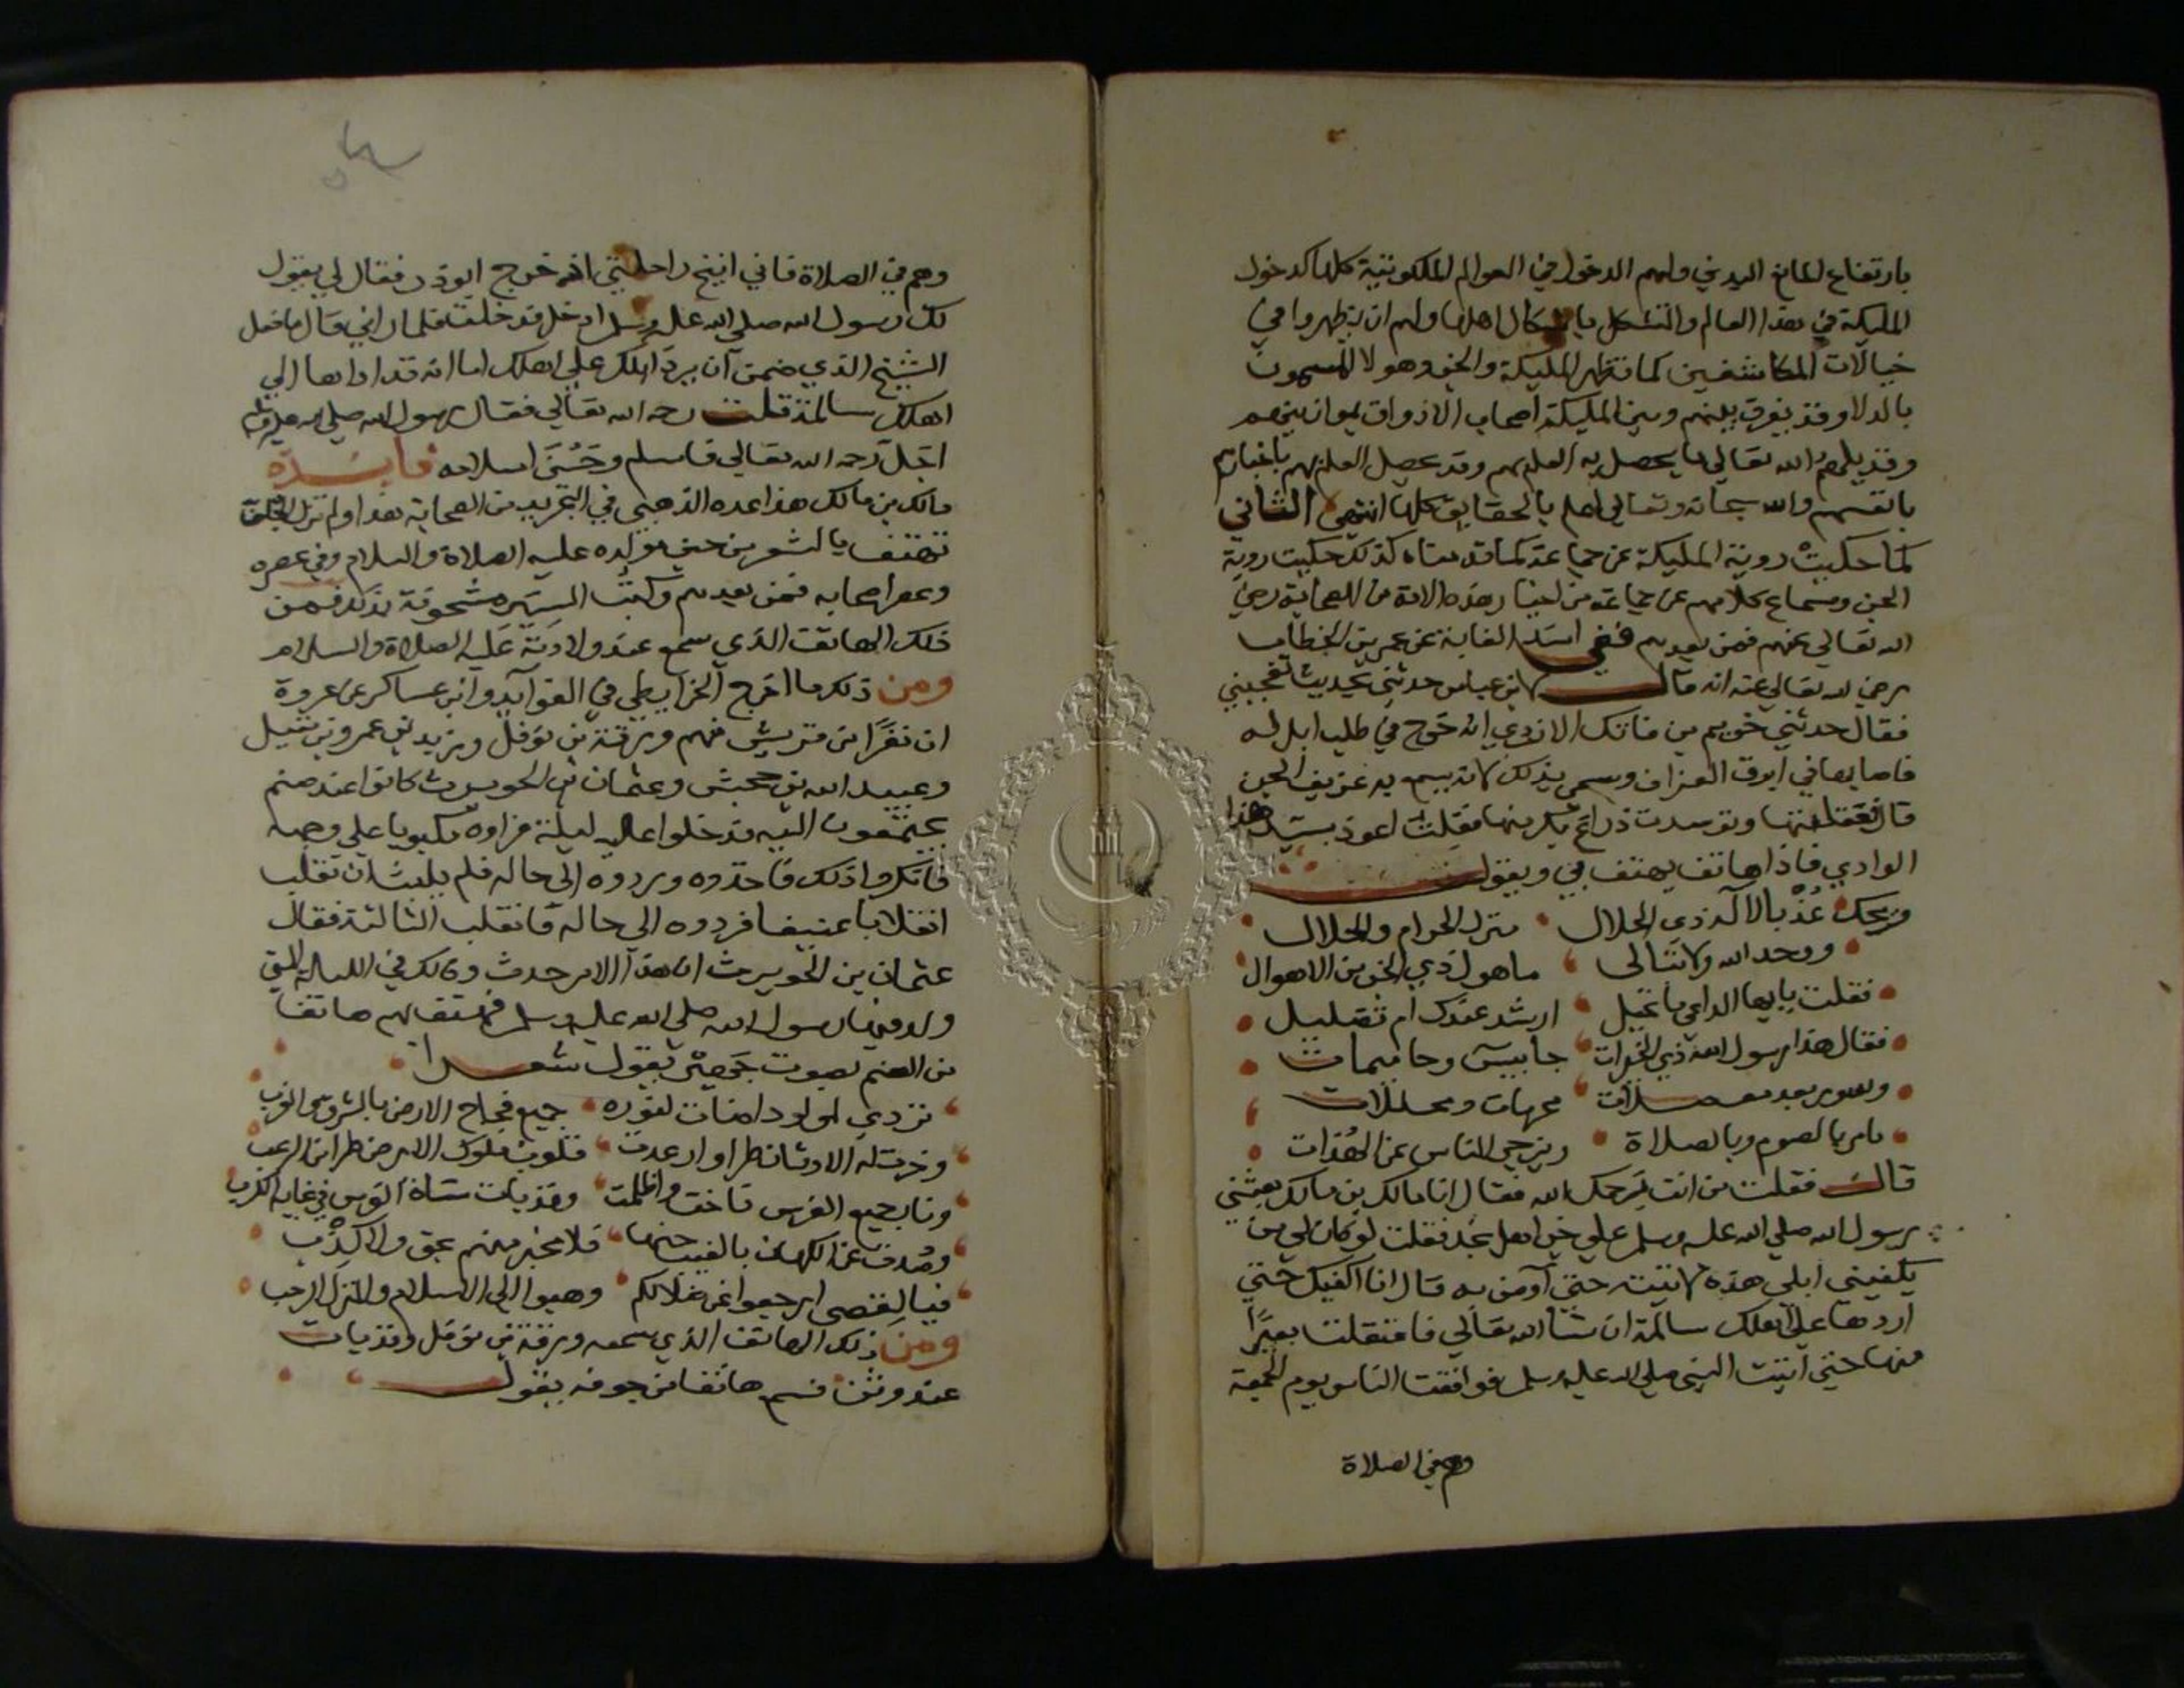 بارتفاع المانع البدني ولهم الدخول في العوالم الملكوتية كلها كدخول
المليكة في هذا العالم والتشكل باشكال اهلها ولهم ان يظهروا في
خيالات المكاشفين كما تظهر المليكة والجن وهولا المسمون
بالبدلا وقد يفرق بينهم وبين المليكة اصحاب الاذواق بموازينهم
وقد يلهم الله تعالي ما يحصل به العلم بهم وقد يحصل العلم بهم باخبارهم
بانفسهم والله سبحانه وتعالي اعلم بالحقايق كلها انتهي الثاني
كما حكيت روية المليكة عن جماعة كما قدمناه كذلك حكيت روية
الجن وسماع كلامهم عن جماعة من اخيار هذه الامة من الصحابة رضي
الله تعالي عنهم فمن بعدهم ففي اسد الغابة عن عمر بن الخطاب
رضي الله تعالي عنه انه قال لابن عباس حدثني بحديث تعجبني
فقال حدثني خريم بن فاتك الازدي انه خرج في طلب ابل له
فاصابها في ابرق العزاف وسمي بذلك لانه يسمع به عزيف الجن
قال فعقلتها وتوسدت ذراع بكر منها فقلت اعوذ بسيد هذا
الوادي فاذا هاتف يهتف بي ويقول
ويحك عذ بالاله ذي الجلال منزل الحرام والحلال
ووحد الله ولا تبالي ما هول ذي الجن من الاهوال
فقلت يا ايها الداعي ما تخيل ارشد عندك ام تضليل
فقال هذا رسول الله ذي الخيرات جا بيسن وحاميمات
وسور بعد مفصلات محرمات ومحللات
يامر بالصوم وبالصلاة ويزجر الناس عن الهنات
قال فقلت من انت يرحمك الله فقال انا مالك بن مالك بعثني
رسول الله صلي الله عليه وسلم علي جن اهل نجد فقلت لو كان لي من
يكفيني ابلي هذه لاتيته حتي آومن به قال انا اكفيك حتي
اردها علي اهلك سالمة ان شا الله تعالي فاعتقلت بعيرًا
منها حتي اتيت النبي صلي الله عليه وسلم فوافقت الناس يوم الجمعة
وهم في الصلاة
وهم في الصلاة فاني انيخ راحلتي اذ خرج ابوذر فقال لي يقول
لك رسول الله صلي الله عليه وسلم ادخل فدخلت فلما راني قال ما فعل
الشيخ الذي ضمن ان يرد ابلك علي اهلك اما انه قد اداها الي
اهلك سالمة قلت رحمه الله تعالي فقال رسول الله صلي الله عليه وسلم
اجل رحمه الله تعالي فاسلم وحَسُنَ اسلامه فايدة
مالك بن مالك هذا عده الذهبي في التجريد من الصحابة هذا ولم تزل الجن
تهتف بالشعر من حين مولده عليه الصلاة والسلام وفي عصره
وعصر اصحابه فمن بعدهم وكتب السير مشحونة بذلك فمن
ذلك الهاتف الذي سمع عند ولادته عليه الصلاة والسلام
ومن ذلك ما اخرج الخرايطي في الهواتف وابن عساكر عن عروة
ان نفرًا من قريش منهم ورقة بن نوفل وزيد بن عمرو بن نفيل
وعبيد الله بن جحش وعثمان بن الحويرث كانوا عند صنم
يجتمعون اليه فدخلوا عليه ليلة فراوه مكبوبا علي وجهه
فانكروا ذلك فاخذوه وردوه الي حاله فلم يلبث ان تقلب
انقلابا عنيفا فردوه الي حاله فانقلب الثالثة فقال
عثمان بن الحويرث ان هذا الامر حدث وذلك في الليلة التي
ولد فيها رسول الله صلي الله عليه وسلم فهتف بهم هاتفا
من الصنم بصوت جَهير يقول شعرا
تردي لمولود اضات لنوره جميع فجاج الارض بالشرق والغرب
وخرت له الاوثان طرا وارعدت قلوب ملوك الارض طرا من الرعب
ونار جميع الفرس باخت واظلمت وقد بات شاه الفرس في غاية الكرب
وصُدت عن الكهان بالغيب جنها فلا مخبر منهم بحق ولا كذب
فيا لقصي ارجعوا عن ضلالكم وهبوا الي الاسلام والمنزل الرحب
ومن ذلك الهاتف الذي سمعه ورقة بن نوفل وقد بات
عند وثن فسمع هاتفا من جوفه يقول